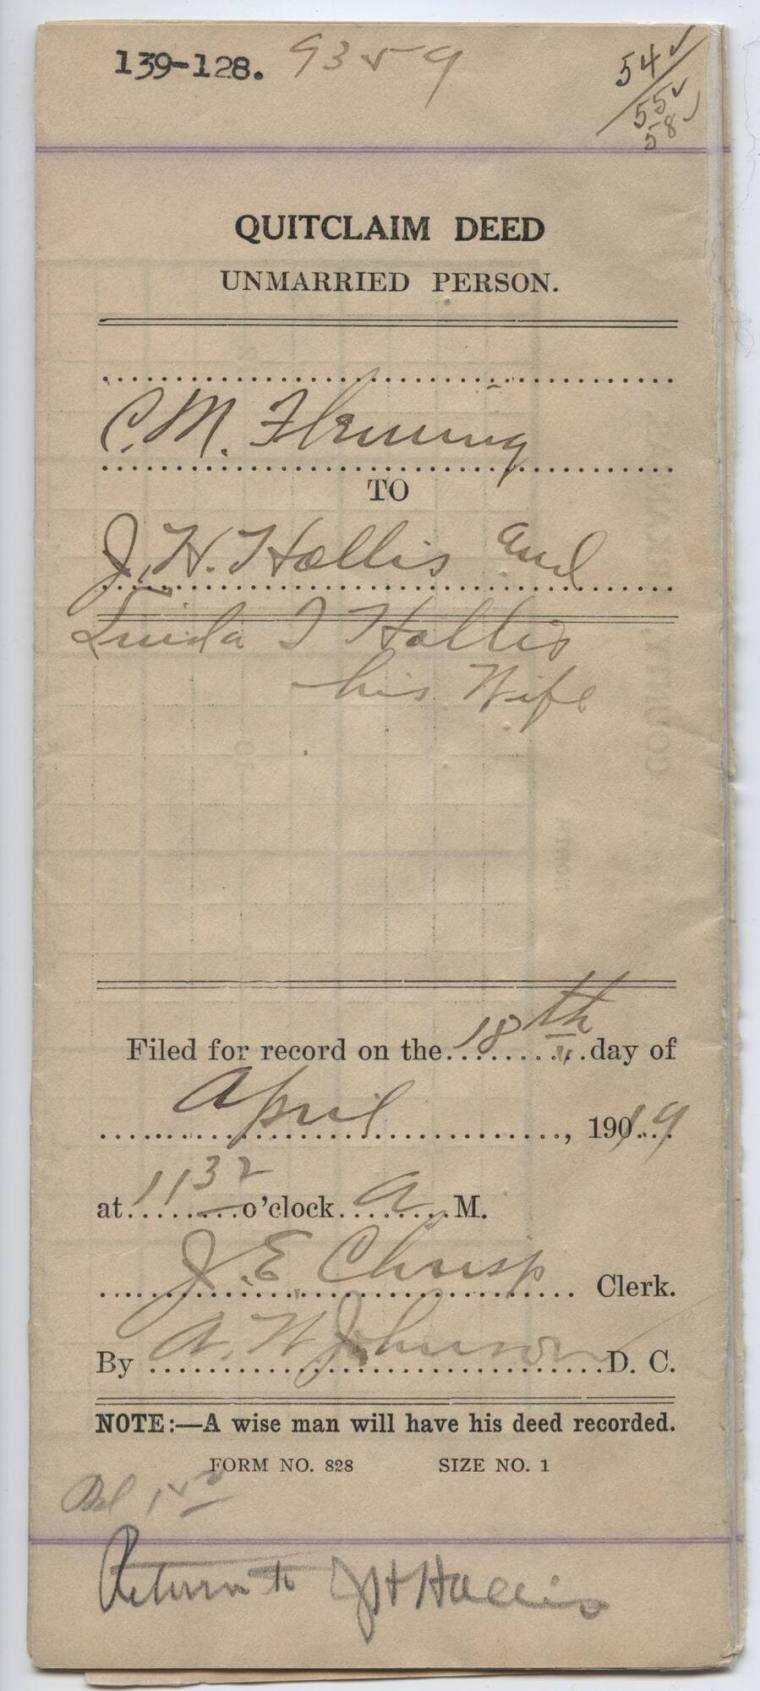 139-128. 9359 54✓
55✓
58✓
QUITCLAIM DEED
UNMARRIED PERSON.
C. M. Fleming
TO
J. H. Hollis and
Linda I Hollis
his Wife
Filed for record on the 18th day of
April, 1919
at 11 32 o'clock A M.
J. E. Chrisp Clerk.
By A. W Johnson D. C.
NOTE:—A wise man will have his deed recorded.
FORM NO. 828 SIZE NO. 1
Return to J H Hollis